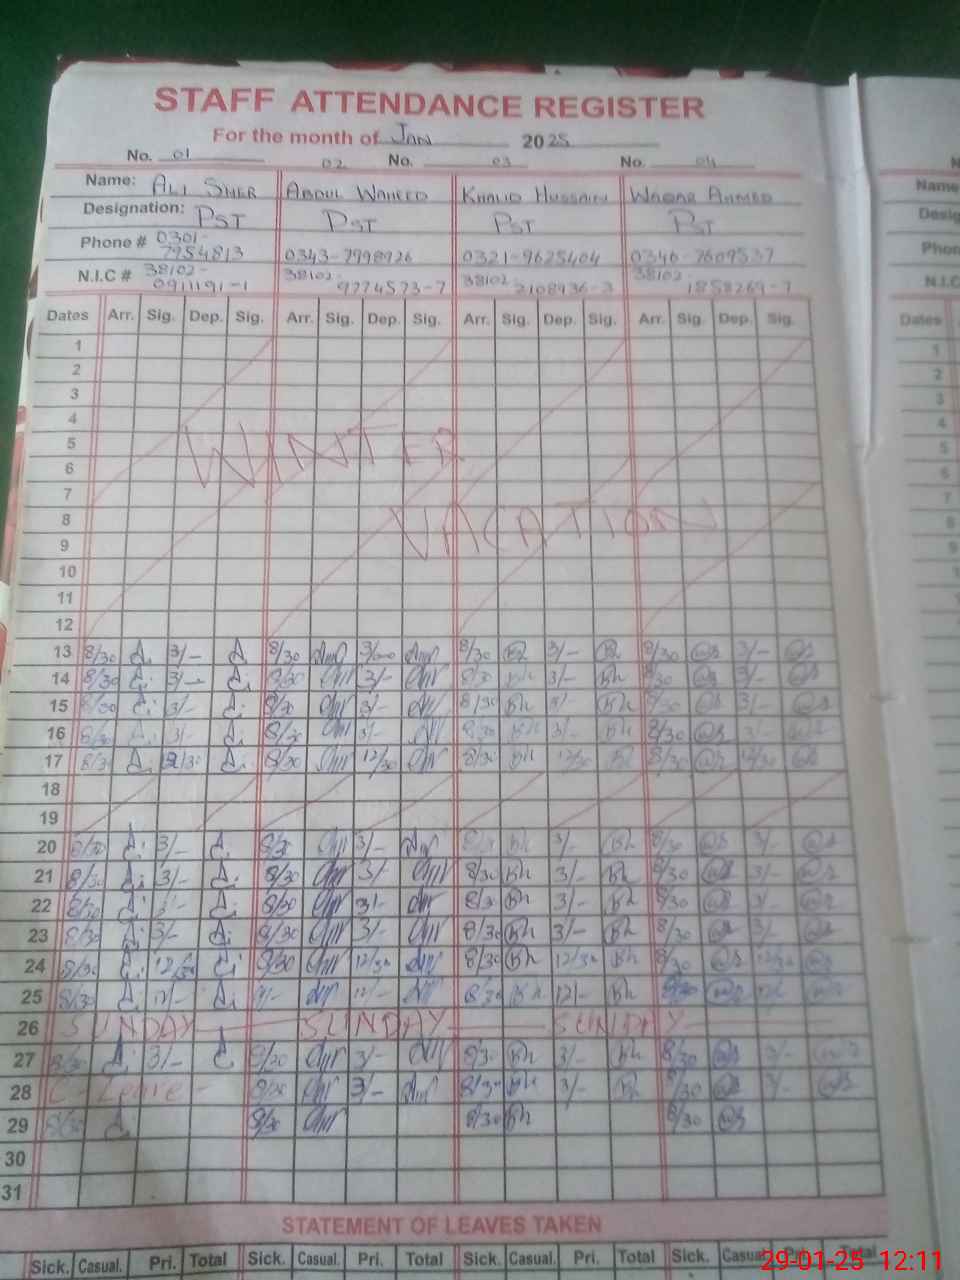 STAFF ATTENDANCE REGISTER
For the month of JAN 2025
No. 01 02 No. 03 No. 04
Name: ALI SHER ABDUL WAHEED KHALID HUSSAIN WAQAR AHMED
Designation: PST PST PST PST
Phone # 0301-7954813 0343-7998926 0321-9625404 0346-7609537
N.I.C # 38102-0911191-1 38102-9774573-7 38102-2108936-3 38102-1858269-7
Dates Arr. Sig. Dep. Sig. Arr. Sig. Dep. Sig. Arr. Sig. Dep. Sig. Arr. Sig. Dep. Sig.
1
2
3
4
5
WINTER
6
7
8
VACATION
9
10
11
12
13 8/30 3/- 8/30 3/- 8/30 3/- 8/30 3/-
14 8/30 3/- 8/30 3/- 8/30 3/- 8/30 3/-
15 8/30 3/- 8/30 3/- 8/30 3/- 8/30 3/-
16 8/30 3/- 8/30 3/- 8/30 3/- 8/30 3/-
17 8/30 8/30 12/30 8/30 12/30 8/30 12/30
18
19
20 8/30 3/- 8/30 3/- 8/30 3/- 8/30 3/-
21 8/30 3/- 8/30 3/- 8/30 3/- 8/30 3/-
22 8/30 8/30 3/- 8/30 3/- 8/30 3/-
23 8/30 3/- 8/30 3/- 8/30 3/- 8/30 3/-
24 8/30 12/30 8/30 12/30 8/30 12/30 8/30 12/30
25 8/30 12/- 12/- 8/30 12/- 8/30 12/-
26 SUNDAY SUNDAY SUNDAY
27 8/30 3/- 8/30 3/- 8/30 3/- 8/30 3/-
28 C-Leave- 8/30 3/- 8/30 3/- 8/30 3/-
29 8/30 8/30 8/30 8/30
30
31
STATEMENT OF LEAVES TAKEN
Sick. Casual. Pri. Total Sick. Casual. Pri. Total Sick. Casual. Pri. Total Sick. Casual. Pri. Total
29-01-25 12:11
Name
Desig
Phon
N.I.C
Dates
1
2
3
4
5
6
7
8
9
10